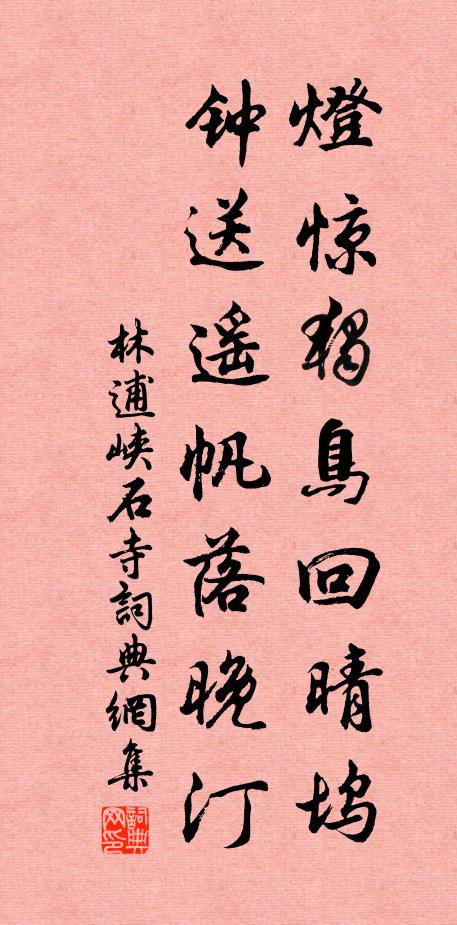 燈惊獨鳥回晴坞
钟送遥帆落晚汀
林逋峡石寺詞典網集
詞典网印